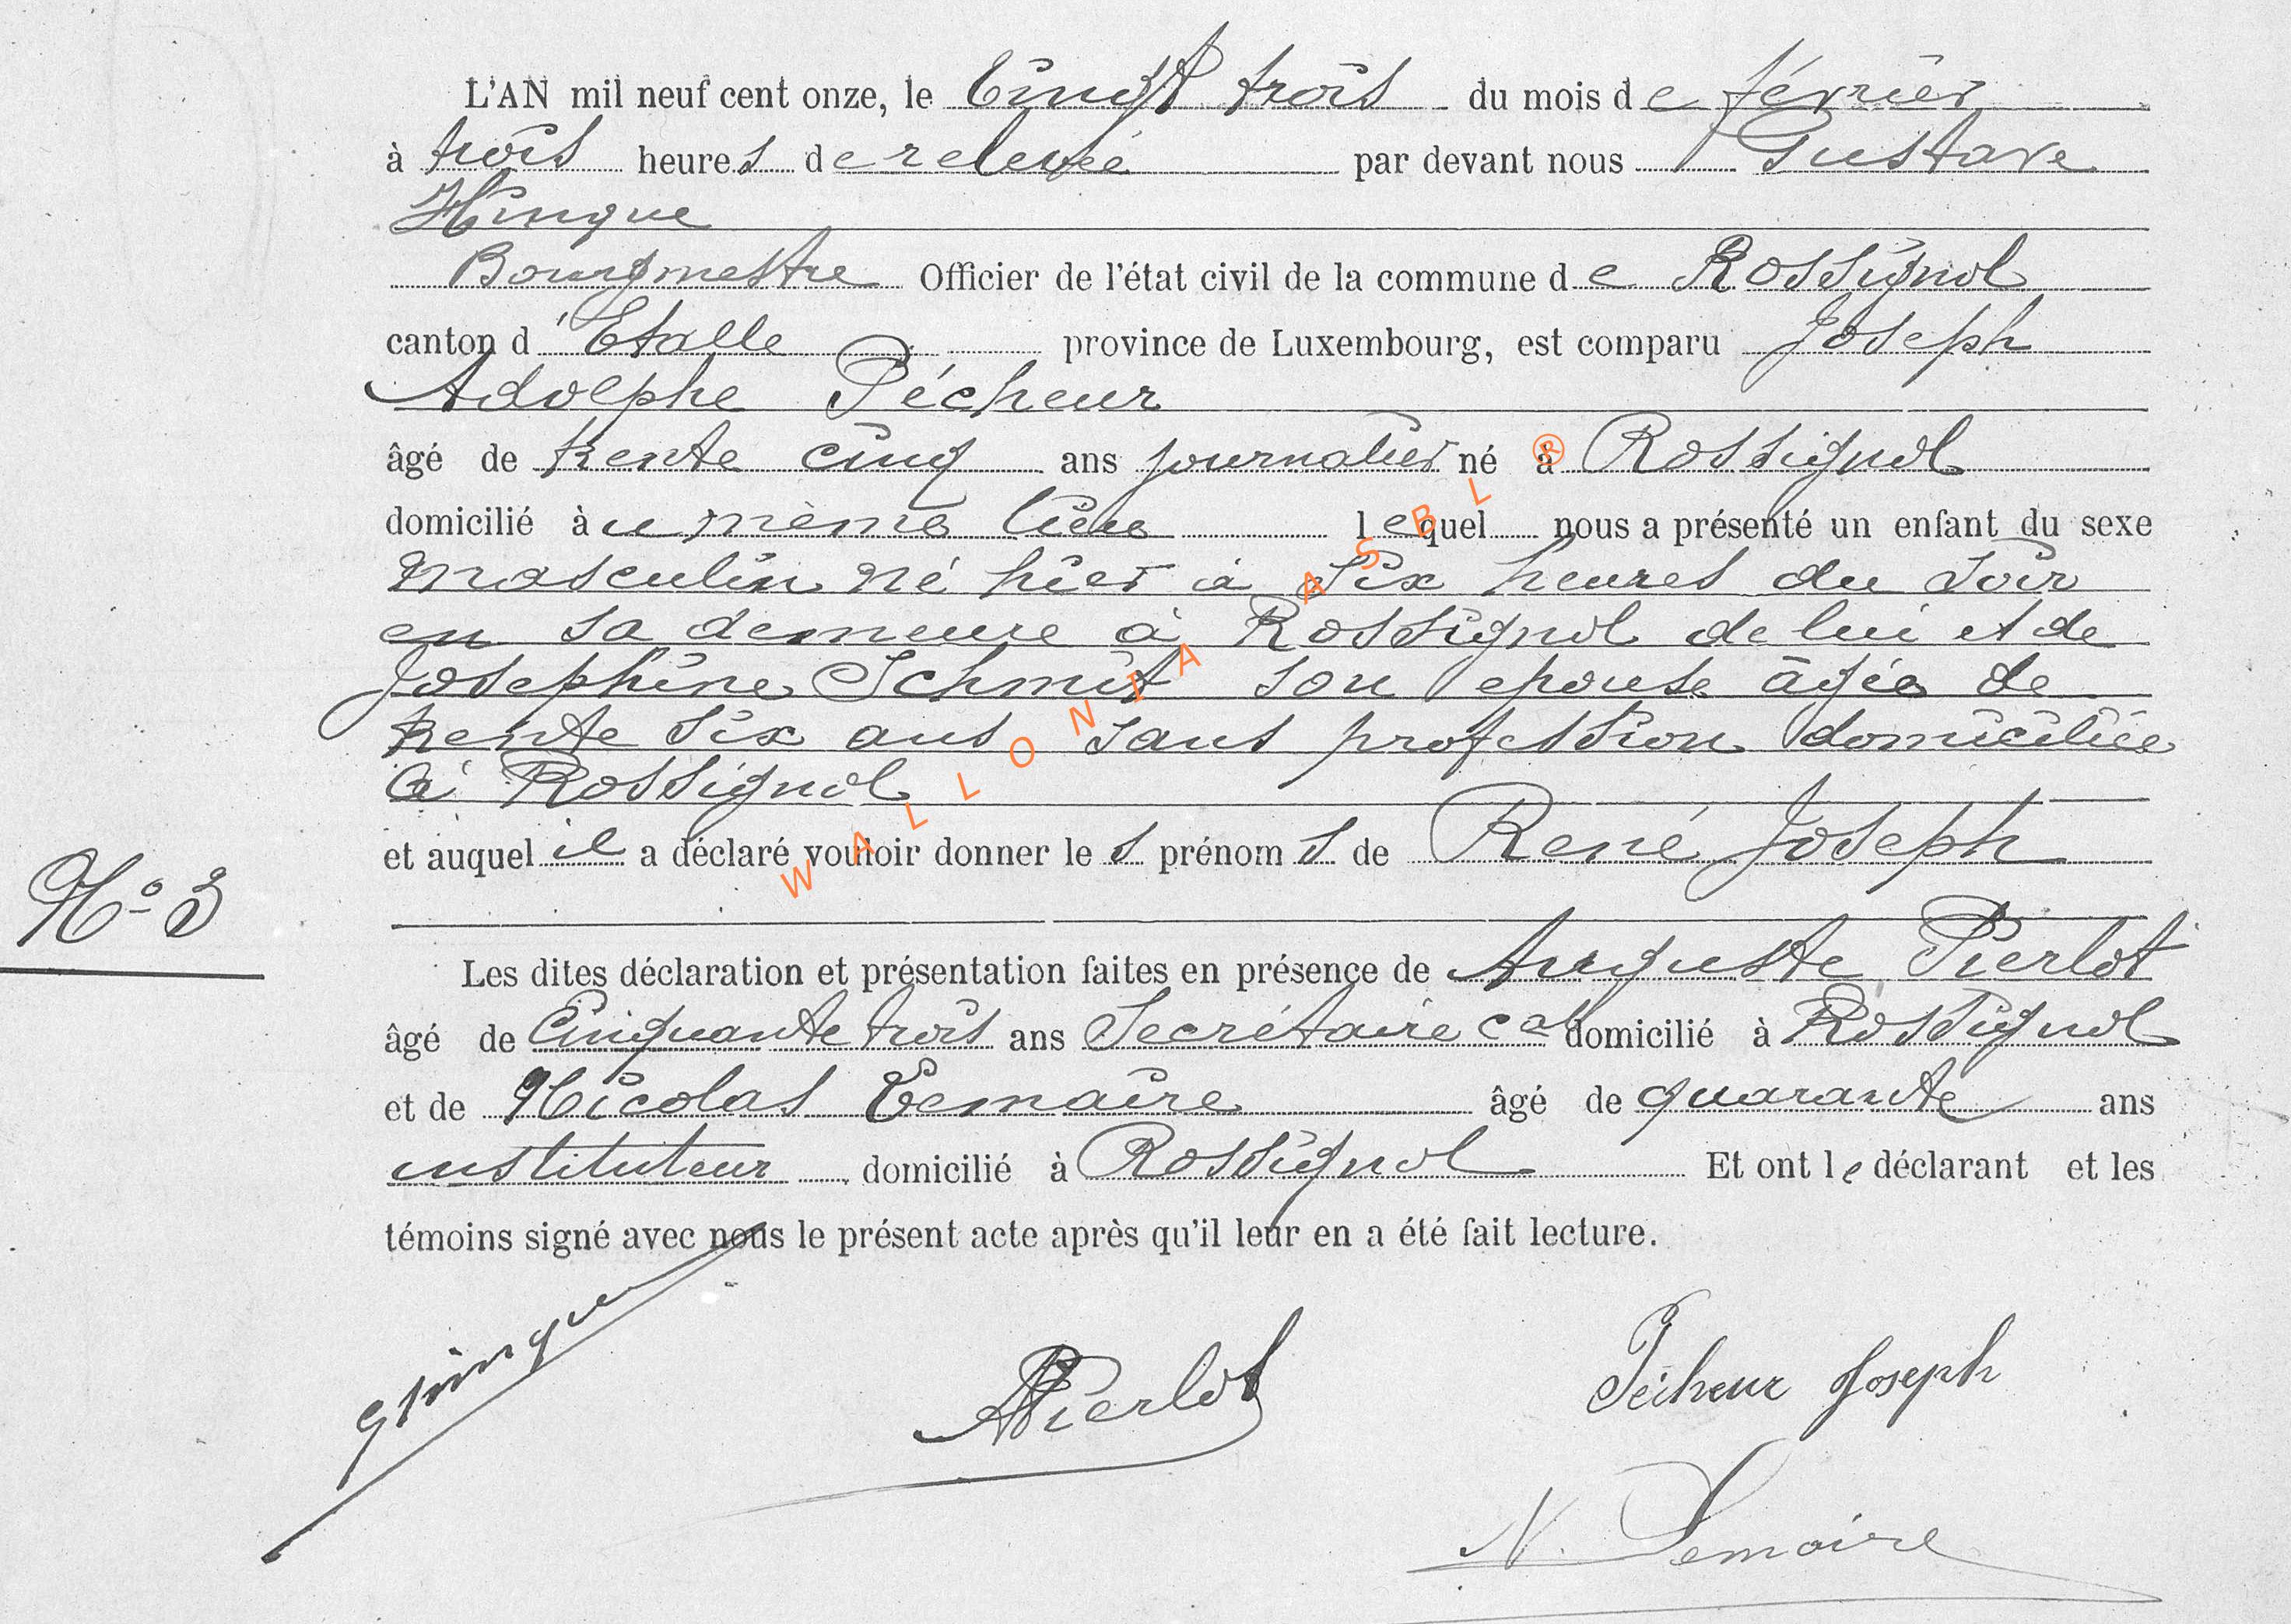 L'AN mil neuf cent onze, le Vingt trois du mois de février
à trois heures de relevée par devant nous Gustave
Hinque
Bourgmestre Officier de l'état civil de la commune de Rossignol
canton d'Etalle province de Luxembourg, est comparu Joseph
Adolphe Pécheur
âgé de trente cinq ans journalier né à Rossignol
domicilié àu même lieu lequel nous a présenté un enfant du sexe
masculin né hier à six heures du soir
en sa demeure à Rossignol de lui et de
Joséphine Schmit son épouse âgée de
trente six ans sans profession domiciliée
à Rossignol
et auquel il a déclaré vouloir donner les prénoms de René Joseph
N° 3
Les dites déclaration et présentation faites en présence de Auguste Pierlot
âgé de Cinquante trois ans Secrétaire cal domicilié à Rossignol
et de Nicolas Lemaire âgé de quarante ans
instituteur domicilié à Rossignol Et ont le déclarant et les
témoins signé avec nous le présent acte après qu'il leur en a été fait lecture.
GHinque
APierlot
Pécheur Joseph
N. Lemaire
WALLONIA ASBL ®